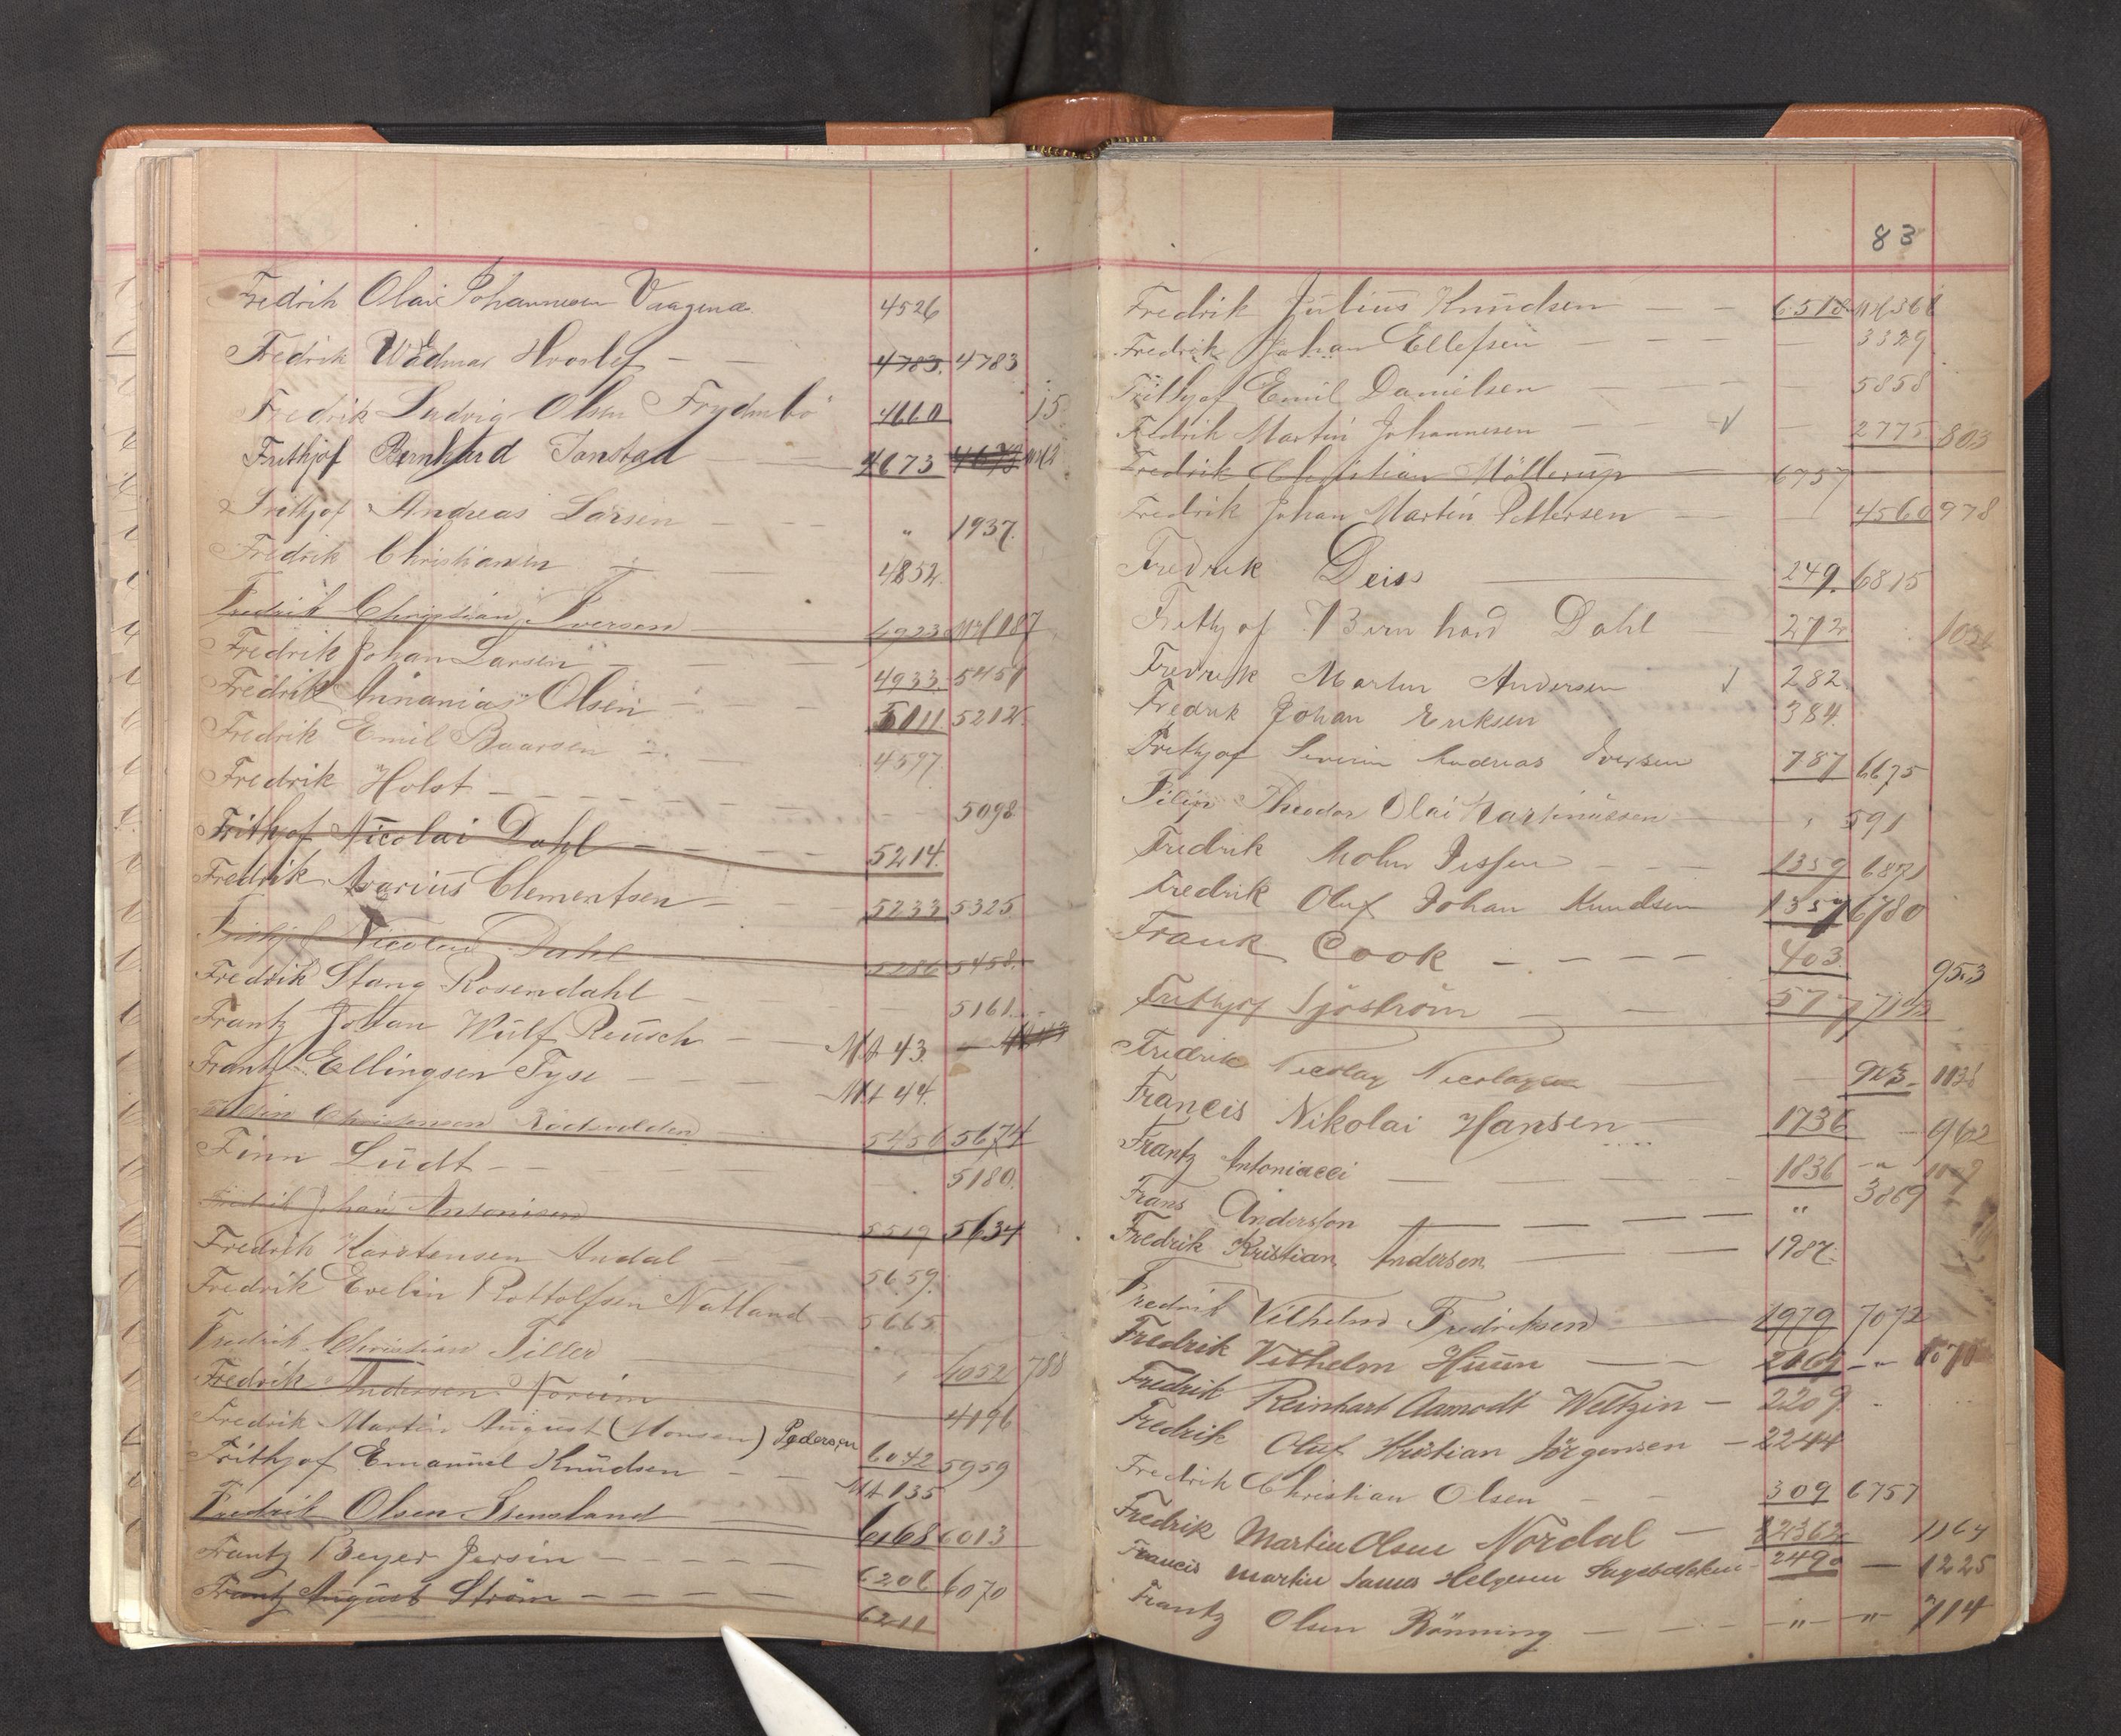 Fredrik Olai Johannesen Vaagenæ 4526
Fredrik Wædmar Hvoslef — — 4783. 4783
Fredrik Ludvig Olsen Frydenbö 4660 15
Frithjof Bernhard Tonstad 4673
Frithjof Andreas Larsen — — „ 1937.
Fredrik Christiansen — — 4852.
Fredrik Christian Iversen 4923 Mt 187
Fredrik Johan Larsen — — 4933. 5451
Fredrik Annanias Olsen — — 5011 5212.
Fredrik Emil Baarsen — 4597
Fredrik Holst — — — 5098
Frithjof Nicolai Dahl — — 5214.
Fredrik Marius Clementsen — — 5233 5325
Frithjof Nicolai Dahl 5286 5458.
Fredrik Stang Rosendahl — 5161.
Frantz Johan Wulf Reusch — Mt 43. —
Frantz Ellingsen Tyse — — Mt 44.
Christensen 5456 5674
Finn Lüdt — — 5180.
Fredrik Johan Antonisen 5519 5634
Fredrik Karstensen Andal — 5659.
Fredrik Evelin Rottolfsen Natland 5665
Fredrik Christian Tiller 6052 788
Fredrik Andersen Noreim 4196
Fredrik Martin August (Monsen) Pedersen 6042 5959
Frithjof Emanuel Knudsen — — Mt 135
Fredrik Olsen Stensland 6168 6013
Frantz Beyer Jersin — — 6206 6070
Frantz August Ström — — — 6211
83
Fredrik Julius Knudsen — — 6518 Mt 368
Fredrik Johan Ellefsen — — — 3329
Frithjof Emil Danielsen — — — 5858
Fredrik Martin Johannesen — — √ — 2775 803
Fredrik Christian Möllerup 6757
Fredrik Johan Martin Pettersen — — 4560 978
Fredrik Deiss — 249. 6815
Frithjof Bernhard Dahl — 272
Fredrik Martin Andersen √ 282
Fredrik Johan Eriksen 384.
Frithjof Severin Andreas Iversen 787 6675
Filip Theodor Olai Martinussen — „ 591
Fredrik Mohn Jessen — — 1359 6871
Fredrik Oluf Johan Knudsen 1357 6780
Frank Cook — — — — 403. 953
Frithjof Sjöström — — 577 7192
Fredrik Nicolay Nicolaysen — 1138
Francis Nikolai Hansen — 1736 — 962
Frantz Antoniacci — — — 1836 — „
Frans Andersson — — — — „ 3869
Fredrik Kristian Andersen — — 1987.
Fredrik Vilhelm Fredriksen — 1979 7072
Fredrik Vilhelm Huun — — 2069 — „ 1070
Fredrik Reinhart Aamodt Weltzin — 2209.
Fredrik Oluf Kristian Jörgensen — 2244
Fredrik Christian Olsen — — 309 6757
Fredrik Martin Olsen Nordal — 2362 1164
Francis Martin James Helgesen — 2490 — 1225
Frantz Olsen Rönning — — — „ — „ — 714